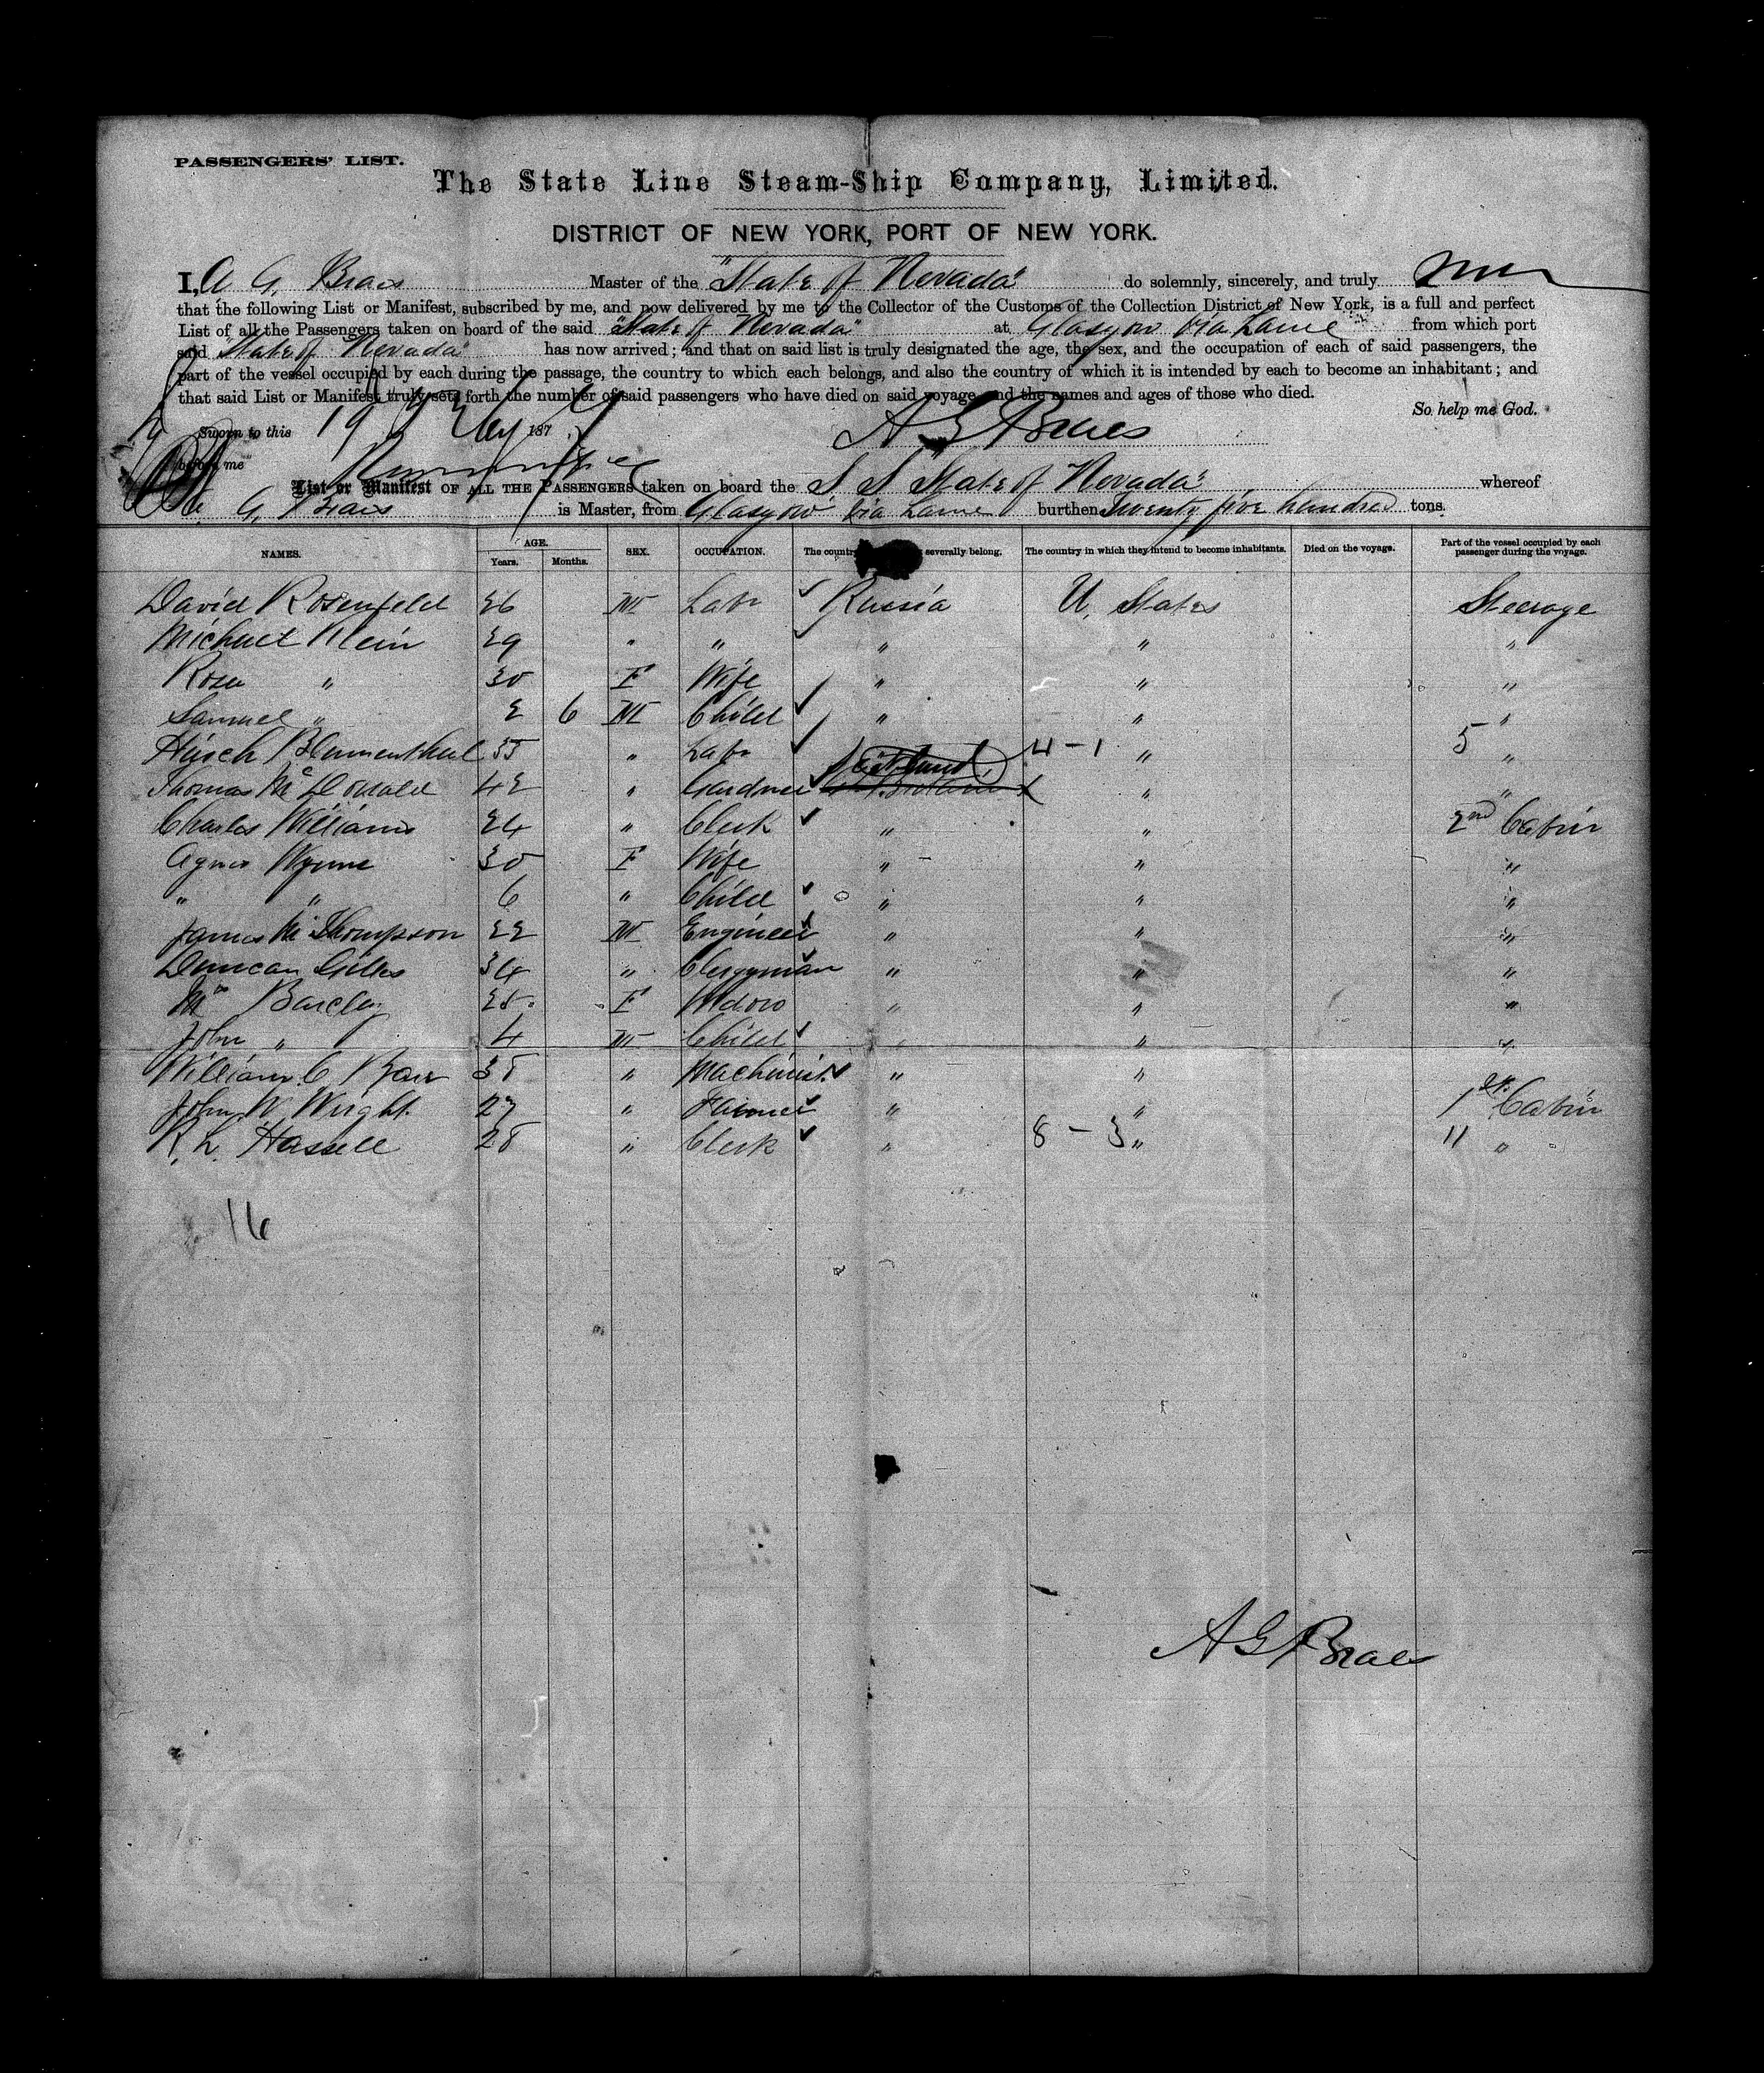 PASSENGERS' LIST.
The State Line Steam-Ship Company, Limited.
DISTRICT OF NEW YORK, PORT OF NEW YORK.
I, A G. Braes Master of the "State of Nevada" do solemnly, sincerely, and truly
that the following List or Manifest, subscribed by me, and now delivered by me to the Collector of the Customs of the Collection District of New York, is a full and perfect
List of all the Passengers taken on board of the said "State of Nevada" at Glasgow via Larne from which port
said "State of Nevada" has now arrived; and that on said list is truly designated the age, the sex, and the occupation of each of said passengers, the
part of the vessel occupied by each during the passage, the country to which each belongs, and also the country of which it is intended by each to become an inhabitant; and
that said List or Manifest truly sets forth the number of said passengers who have died on said voyage and the names and ages of those who died.
So help me God.
Sworn to this 19 187 A G Braes
before me
List or Manifest OF ALL THE PASSENGERS taken on board the S S State of Nevada" whereof
A. G. Braes is Master, from Glasgow via Larne burthen Twenty five hundred tons.
NAMES. AGE. Years. Months. SEX. OCCUPATION. The country severally belong. The country in which they intend to become inhabitants. Died on the voyage. Part of the vessel occupied by each passenger during the voyage.
David Rosenfeld 26 M Labr Russia U. States Steerage
Michael Klein 29 " " " " "
Rosa " 30 F Wife " " "
Samuel " 2 6 M Child " " "
Hirsch Blumenthal 35 " Labr 4 - 1 " 5 "
Thomas McDonald 42 " Gardner Scotland " "
Charles Williams 24 " Clerk " " 2nd Cabin
Agnes Wynne 30 F Wife " " "
" " 6 " Child " " "
James M. Thompson 22 M Engineer " " "
Duncan Gillis 34 " Clergyman " " "
Mrs Barclay 28 F Widow " " "
John " 4 M Child " " "
William C. Barr 38 " Machinist " "
John W. Wright 27 " Farmer " " 1st Cabin
R. L. Hassell 28 " Clerk " 8 - 3 " 11 "
16
A G Braes